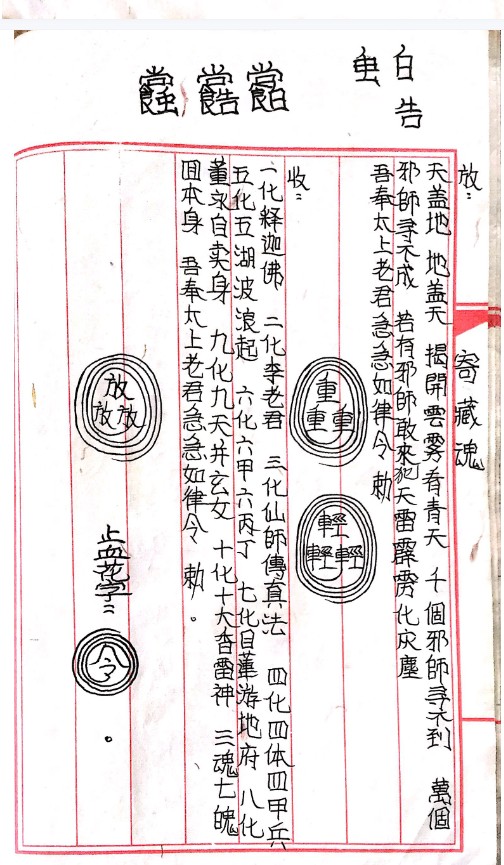 白告
虫
放：
寄藏魂
天盖地 地盖天 揭開雲霧看青天 千個邪師尋不到 萬個
邪師尋不成 若有邪師敢來犯天雷霹雳化灰塵
吾奉太上老君急急如律令 勅
重
重重
輕
輕輕
收：
一化释迦佛 二化李老君 三化仙師傳真法 四化四体四甲兵
五化五湖波浪起 六化六甲六丙丁 七化目莲游地府 八化
董永自卖身 九化九天并玄女 十化十大杳雷神 三魂七魄
回本身 吾奉太上老君急急如律令 勅。
放
放放
止血花字：
令